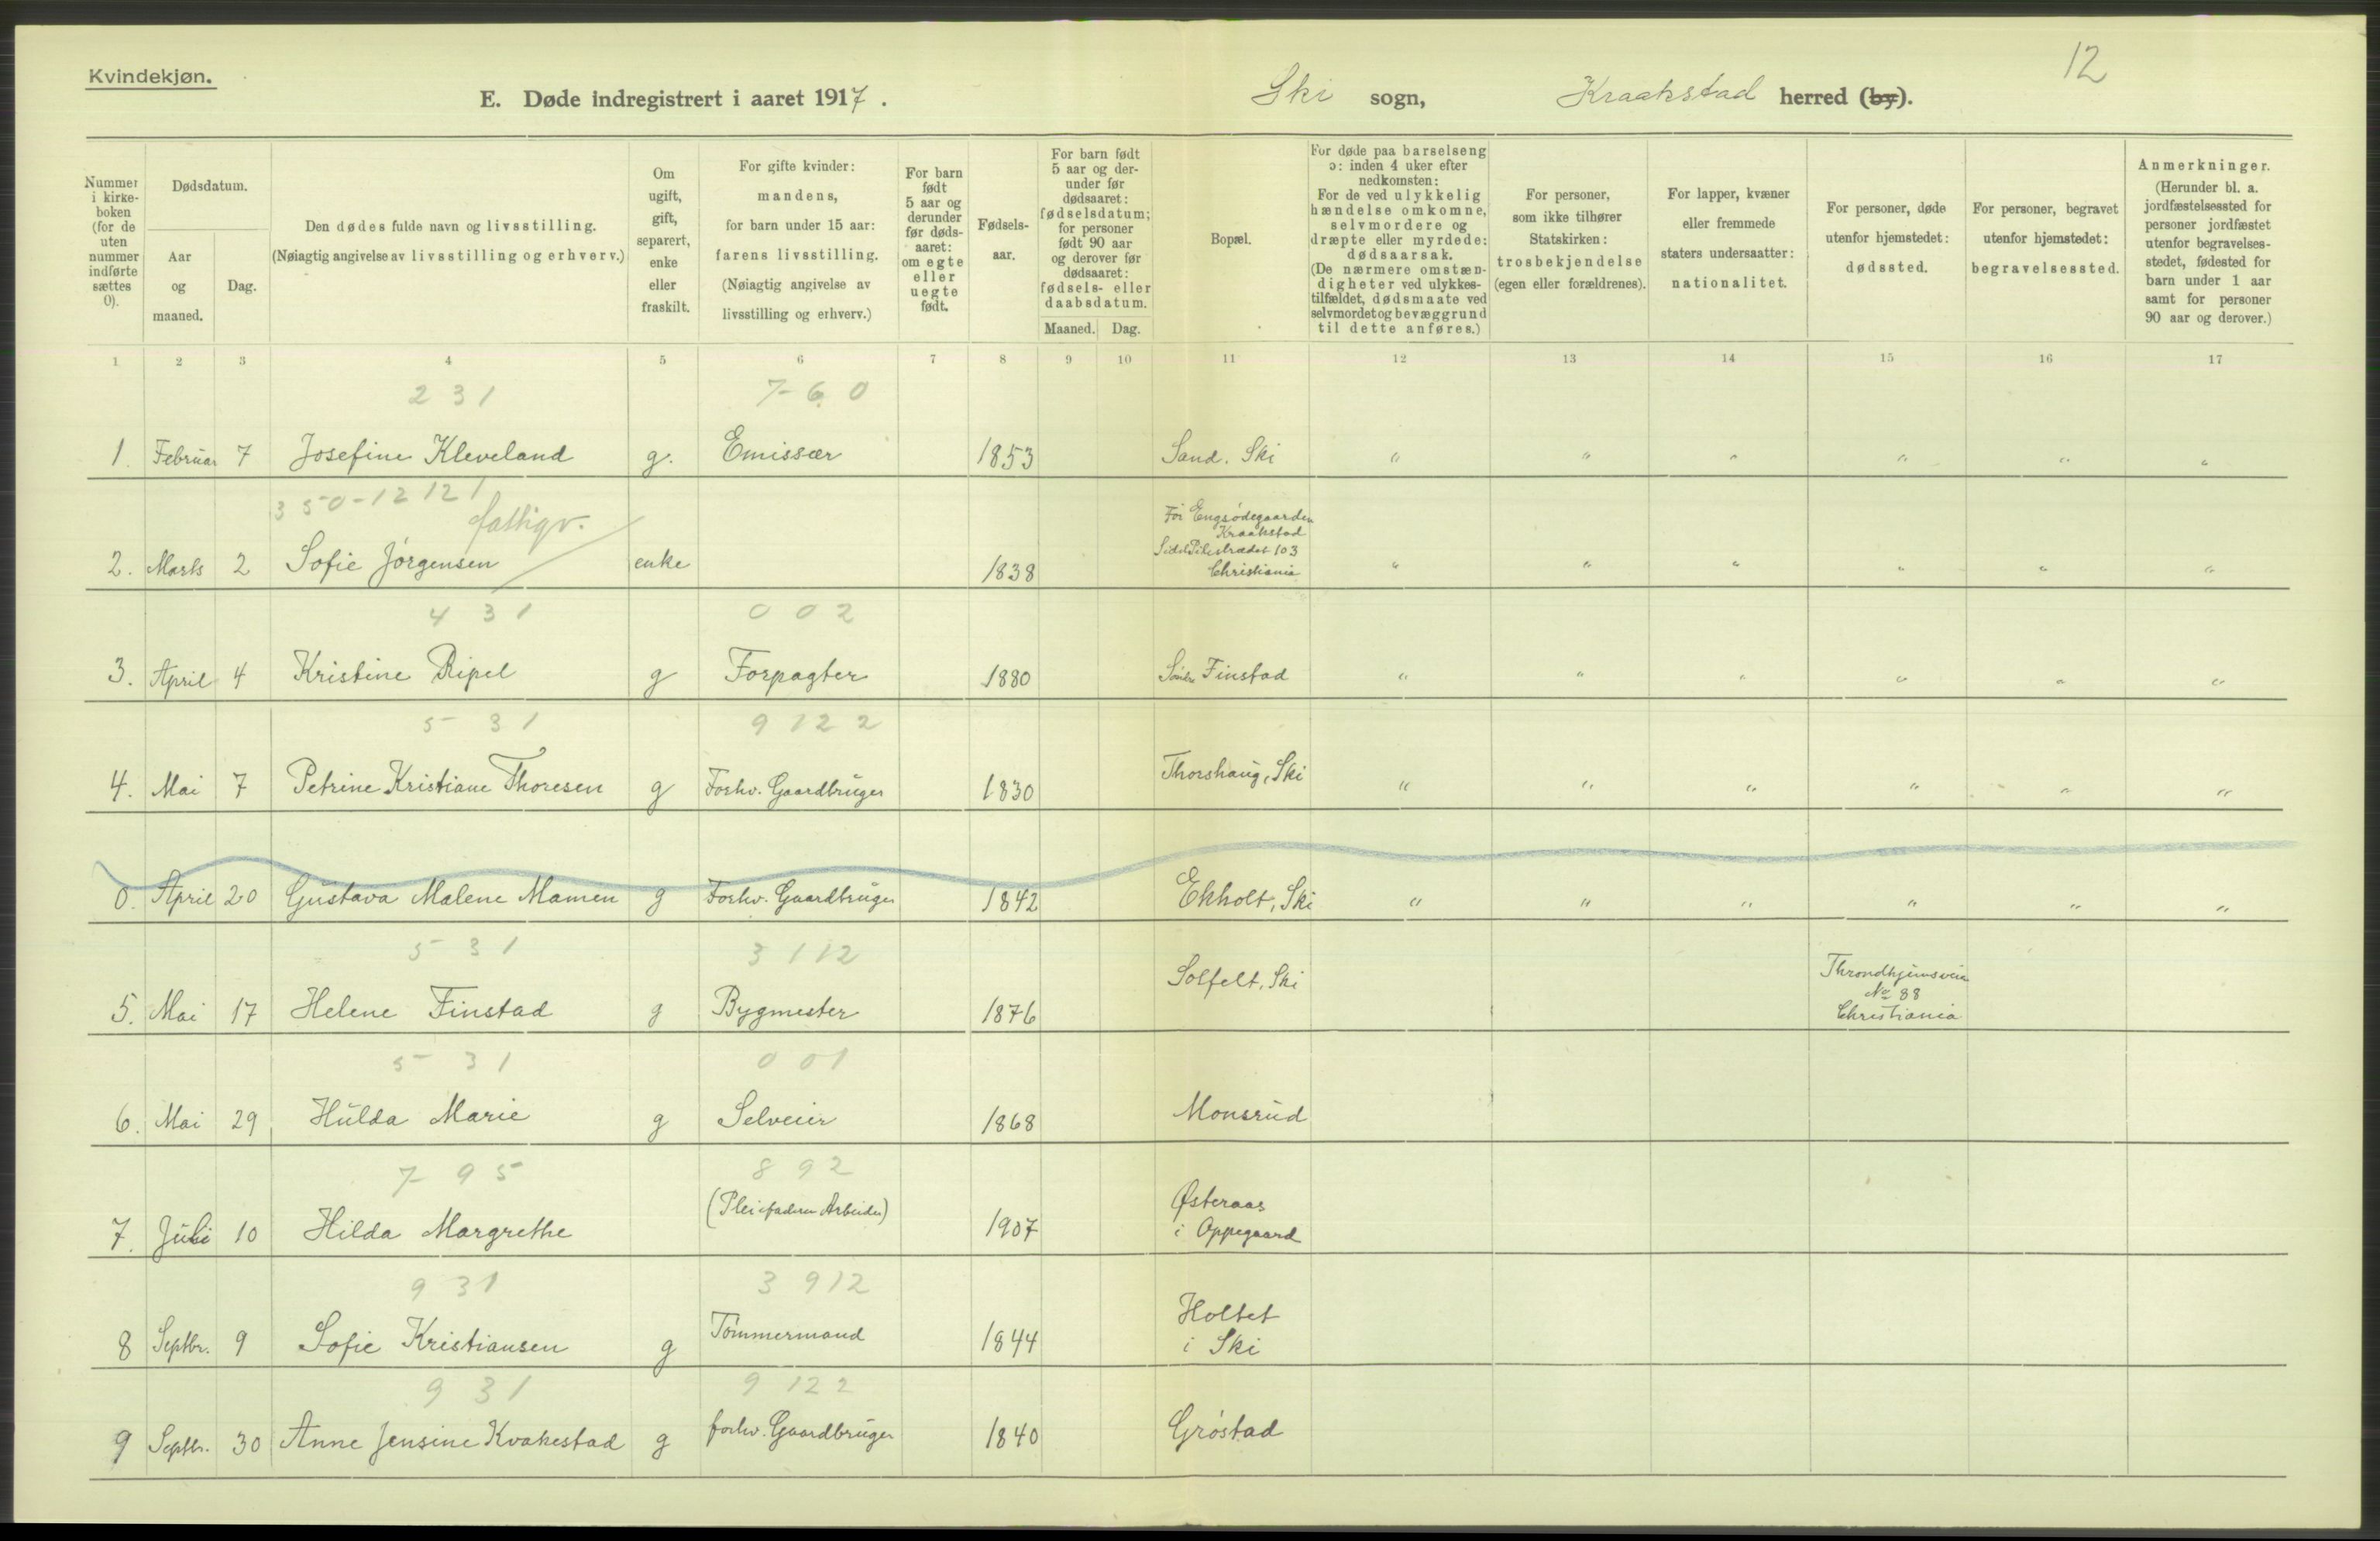 Kvindekjøn.
12
E. Døde indregistrert i aaret 1917. Ski sogn, Kraakstad herred (by).
Nummer i kirkeboken (for de uten nummer indførte sættes 0).
Dødsdatum.
Aar og maaned.
Dag.
Den dødes fulde navn og livsstilling.
(Nøiagtig angivelse av livsstilling og erhverv.)
Om ugift, gift, separert, enke eller fraskilt.
For gifte kvinder: mandens, for barn under 15 aar: farens livsstilling. (Nøiagtig angivelse av livsstilling og erhverv.)
For barn født 5 aar og derunder før dødsaaret: om egte eller uegte født.
Fødselsaar.
For barn født 5 aar og derunder før dødsaaret: fødselsdatum; for personer født 90 aar og derover før dødsaaret: fødsels- eller daabsdatum.
Maaned. Dag.
Bopæl.
For døde paa barselseng ɔ: inden 4 uker efter nedkomsten: For de ved ulykkelig hændelse omkomne, selvmordere og dræpte eller myrdede: dødsaarsak. (De nærmere omstændigheter ved ulykkestilfældet, dødsmaate ved selvmordet og bevæggrund til dette anføres.)
For personer, som ikke tilhører Statskirken: trosbekjendelse (egen eller forældrenes).
For lapper, kvæner eller fremmede staters undersaatter: nationalitet.
For personer, døde utenfor hjemstedet: dødssted.
For personer, begravet utenfor hjemstedet: begravelsessted.
Anmerkninger. (Herunder bl. a. jordfæstelsessted for personer jordfæstet utenfor begravelsesstedet, fødested for barn under 1 aar samt for personer 90 aar og derover.)
1 2 3 4 5 6 7 8 9 10 11 12 13 14 15 16 17
2 3 1 7 6 0
1. Februar 7 Josefine Kleveland g. Emissær 1853 Sand. Ski " " " " " "
350-12 12 1 fattigv.
For Engsødegaarden
Kraakstad
Pilestrædet 103
2. Marts 2 Sofie Jørgensen enke 1838 Christiania " " " " " "
4 3 1 0 0 2
3. April 4 Kristine Ripel g Forpagter 1880 Søndre Finstad " " " " " "
5 3 1 9 12 2
4. Mai 7 Petrine Kristiane Thoresen g Forhv. Gaardbruger 1830 Thorshaug, Ski " " " " " "
0. April 20 Gustava Malene Mamen g Forhv. Gaardbruger 1842 Ekholt, Ski " " " " " "
5 3 1 3 112
5. Mai 17 Helene Finstad g Bygmester 1876 Solfelt, Ski Throndhjemsveien
No 88
Christiania
5 3 1 0 0 1
6. Mai 29 Hulda Marie g Selveier 1868 Monsrud
7 9 5 8 9 2
7. Juli 10 Hilda Margrethe (Pleiefaderen Arbeider) 1907 Østeraas
i Oppegaard
9 3 1 3 912
8 Septbr. 9 Sofie Kristiansen g Tømmermand 1844 Holtet
i Ski
9 3 1 9 12 2
9 Septbr. 30 Anne Jensine Kvakestad g forhv. Gaardbruger 1840 Grøstad